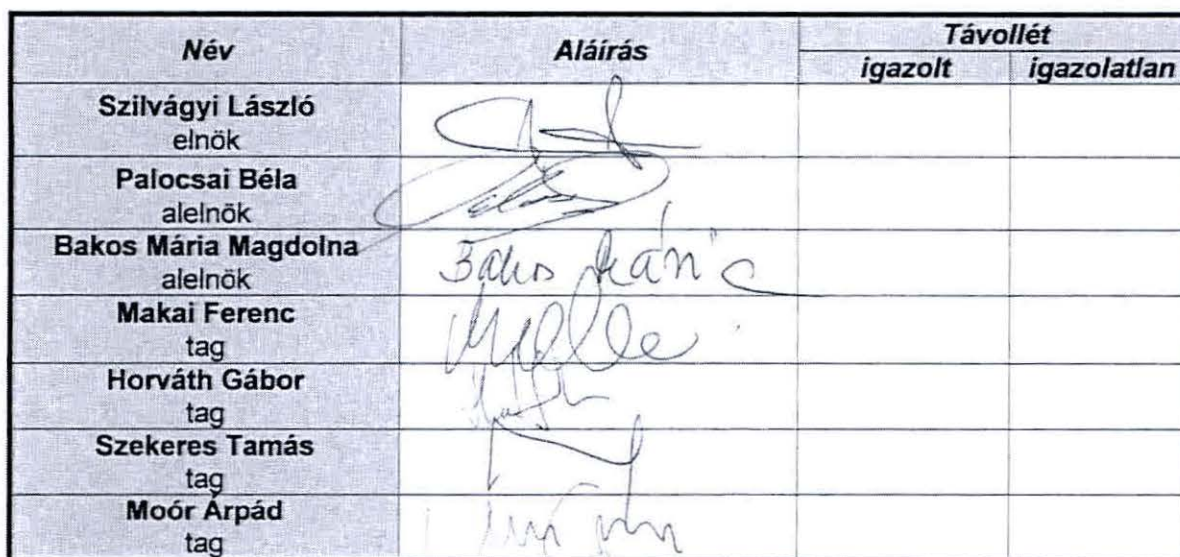 Név Aláírás Távollét
igazolt igazolatlan
Szilvágyi László
elnök
Palocsai Béla
alelnök
Bakos Mária Magdolna
alelnök
Bakos Mária
Makai Ferenc
tag
Horváth Gábor
tag
Szekeres Tamás
tag
Moór Árpád
tag